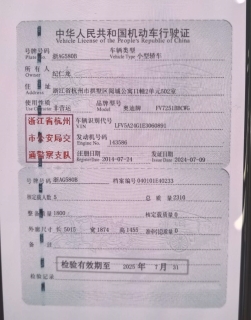 中华人民共和国机动车行驶证
Vehicle License of the People's Republic of China
号牌号码 浙AG580B 车辆类型 小型轿车
Plate No. Vehicle Type
所有人
Owner
住址 浙江省杭州市
Address
使用性质 非营运 品牌型号 奥迪牌 FV7251BBCWG
Use Character Model
浙江省杭州
市公安局交
通警察支队
车辆识别代号
VIN
发动机号码
Engine No. 143586
注册日期 2014-07-24 发证日期 2024-07-09
Register Date Issue Date
号牌号码 浙AG580B 档案编号
核定载人数 5 总质量 2310
整备质量 1800 核定载质量
外廓尺寸 长 5015 宽 1874 高 1455
检验有效期至 2025 年 7 月 31
检验记录